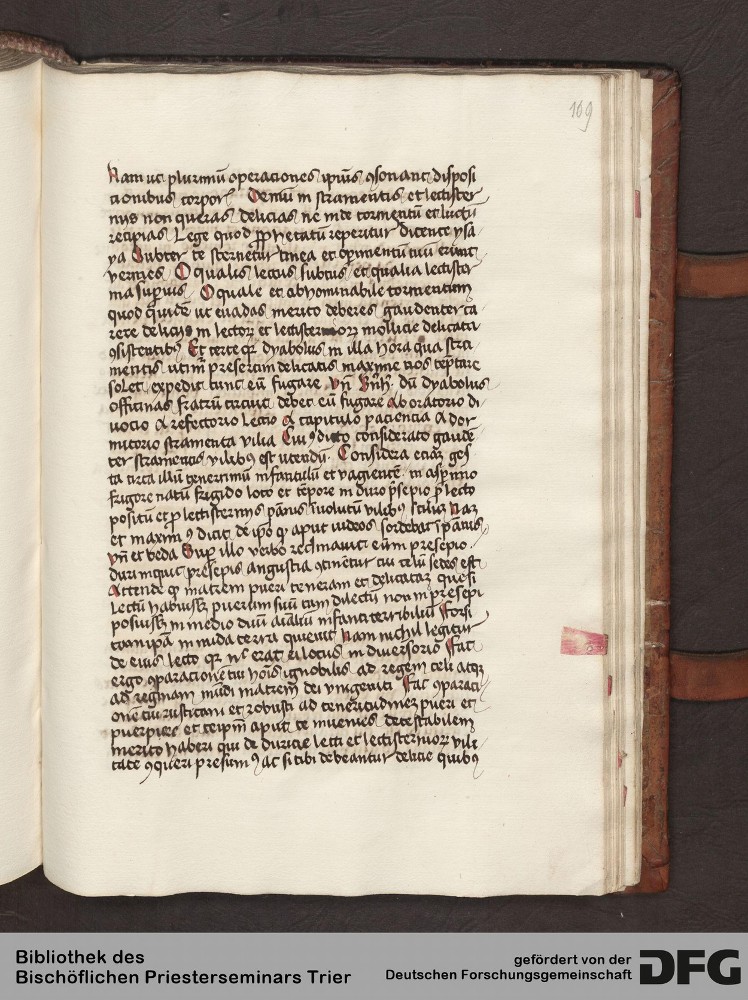 169
Nam ut plurimū operaciones ipiūs ꝯsonant disposi
tionibus corporꝭ Demū in stramentis et lectister
niis non queras delicias ne inde tormentū et luctū
recipias Lege quod ꝓphetatū reperitur dicente ysa
ya Subter te sternetur tinea et opimentū tuū erunt
vermes O qualis lectus subtus et qualia lectister
nia supius O quale et abhominabile tormentum
quod quidē ut euadas merito deberes gaudenter ca
rere deliciis in lectoꝝ et lectisternioꝝ mollicie delicata
ꝯsistentibꝰ Et certe qꝛ dyabolus in illa hora qua stra
mentis utim̄ presertim delicatis maxime nos tēptare
solet expedit tunc eū fugare vn̄ dū dyabolus
officinas fratrū circuit debet eū fugare Ab oratorio di
uocio A refectorio lectio A capitulo paciencia A dor
mitorio stramenta vilia Cui ꝯdicto considerato gaude
ter stramentis vilibꝰ est utendū Considera eciaꝫ ges
ta circa illū tenerrimū infantulū et vagientē in asꝑrimo
frigore natū frigido loco et tēpore in duro p̄sepio ꝓ lecto
positū et ꝓ lectisterniis pānis īuolutū vilibꝰ naꝫ
et maximꝰ dicit de ip̄o qꝫ aput iudeos sordebat ī pānis
vn̄ et beda Suꝑ illo verbo reclinauit eūm presepio
duri inquit presepis angustia ꝯtinetur cui celū sedes est
Attende qꝫ matrem pueri teneram et delicataꝫ que si
lectū habuisꝫ puerum suū tam dilectū non in presepi
posuisꝫ in medio duū aīaliū infanti terribiliū Forsi
tam ipā in nuda terra quieuit Nam nichil legitur
de eius lecto qꝛ nō erat ei locus in diuersorio Fac
ergo ꝯparacionē tui hoīs ignobilis ad regem celi atqꝫ
ad reginam mūdi matrem dei vnigeniti Fac ꝯparaci
onē tui rusticani et robusti ad teneritudineꝫ pueri et
puerpere et teipm̄ aput te inuenies detestabilem
merito haberi qui de duricie lecti et lectisternioꝝ vili
tate ꝯqueri presumꝰ ac si tibi debeantur delicie quibꝰ
Bibliothek des
Bischöflichen Priesterseminars Trier
gefördert von der
Deutschen Forschungsgemeinschaft
DFG